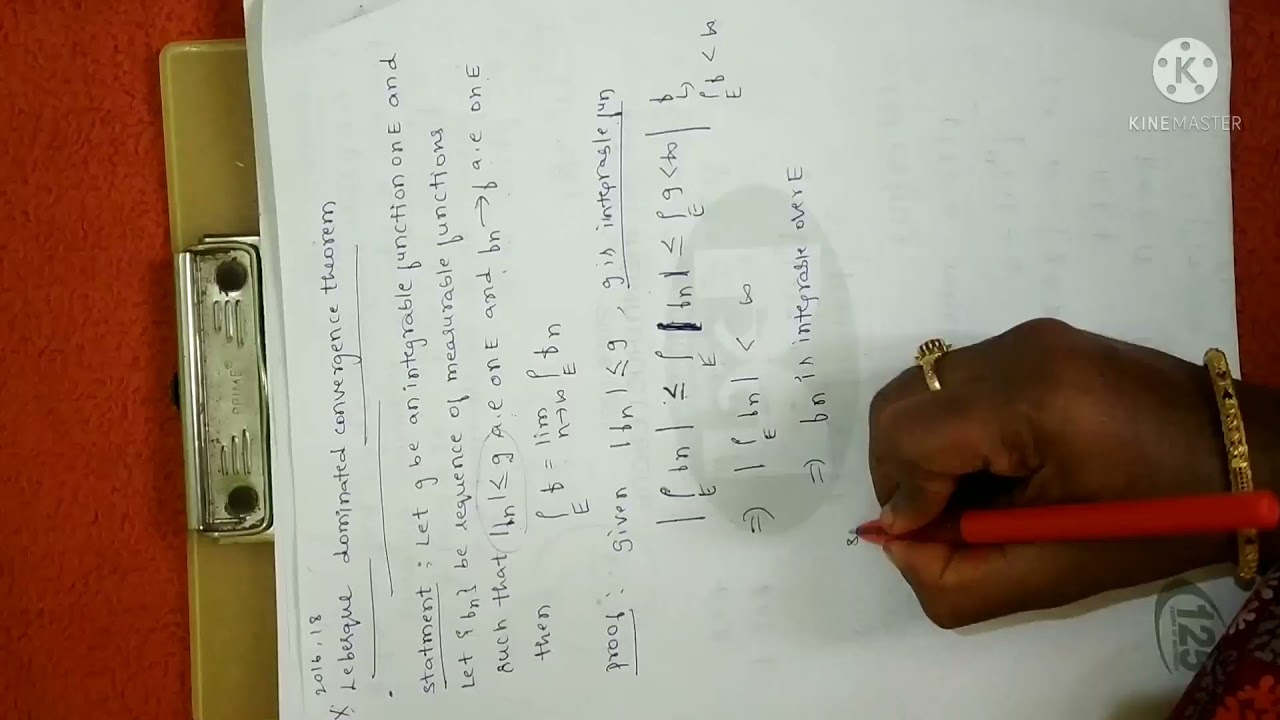 2016, 18
X. Lebesgue dominated convergence theorem
statment : Let g be an integrable function on E and
Let {fn} be sequence of measurable functions
such that |fn| ≤ g a.e on E and fn → f a.e on E
then ∫_E f = lim_{n→∞} ∫_E fn
proof : given |fn| ≤ g, g is integrable fun
|∫_E fn| ≤ ∫_E |fn| ≤ ∫_E g < ∞ | f ↳ ∫_E f < ∞
⇒ |∫_E fn| < ∞
⇒ fn is integrable over E
KINEMASTER
125